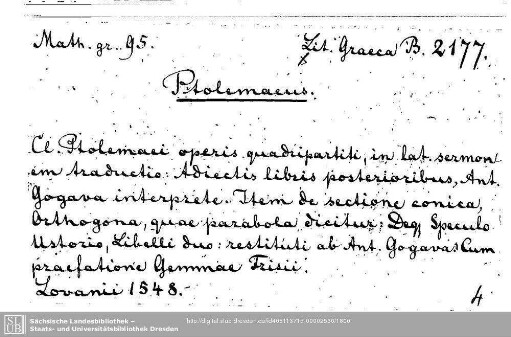 Math. gr. 95.
Lit. Graeca B. 2177.
Ptolemaeus.
Cl. Ptolemaei operis quadripartiti, in lat. sermon
em traductio: Adiectis libris posterioribus, Ant.
Gogava interprete. Item de sectione conica,
Orthogona, quae parabola dicitur; Deq; Speculo
Ustorio, Libelli duo: restituti ab Ant. Gogava. Cum
praefatione Gemmae Frisii.
Lovanii 1548.
4
SLUB
Sächsische Landesbibliothek –
Staats- und Universitätsbibliothek Dresden